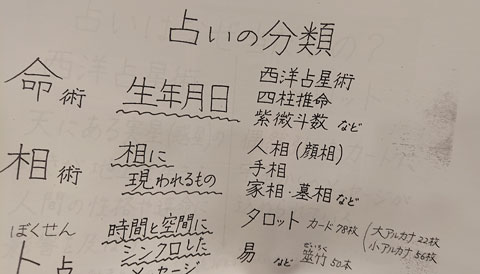 占いの分類
命術
生年月日
西洋占星術
四柱推命
紫微斗数 など
相術
相に
現われるもの
人相(顔相)
手相
家相・墓相 など
ぼくせん
卜占
時間と空間に
シンクロした
メッセージ
タロット カード 78枚
(大アルカナ 22枚
小アルカナ 56枚
易 など
ぜいちく
筮竹 50本